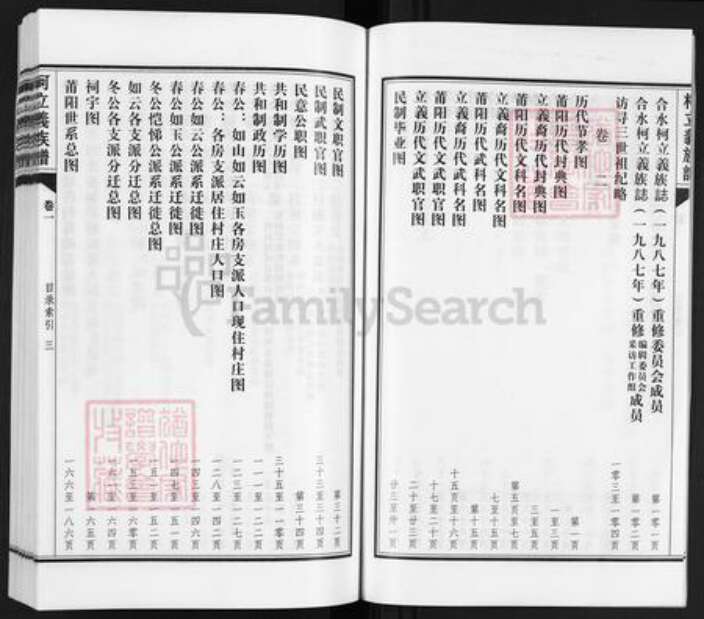 合永柯立義族誌（一九八七年）重修委员会成员 第一〇一页
合永柯立義族誌（一九八七年）重修 编辑委员会 采访工作组 成员 第一〇二页
访寻三世祖纪略 一〇三至一〇四页
卷二
历代节孝图 第一页
莆阳历代封典图 一至三页
立義裔历代封典图 三至五页
莆阳历代文科名图 第五页至七页
立義裔历代文科名图 七至十五页
莆阳历代武科名图 第十五页
立義裔历代武科名图 十五页至十六页
莆阳历代文武职官图 十七至二十页
立義历代文武职官图 二十至廿三页
民制毕业图
民制文职官图 第三十二页
民制武职官图 三十三至三十四页
民意公职图 第三十四页
共和制学历图 三十五至一一〇页
共和制政历图 一一一至一二二页
春公：如山如云如玉各房支派人口现住村庄图 一二三至一二七页
春公：各房支派居住村庄人口图 一二八至一四二页
春公如云公派系迁徙图 一四三至一四六页
春公如玉公派系迁徙图 一四七至一五一页
冬公恺悌公派系迁徙总图 一五一至一五二页
如云各支派分迁总图
冬公各支派分迁总图
祠宇图 第一六五页
莆阳世系总图 一六六至一八六页
柯立義族譜
卷一
目录索引 三
FamilySearch